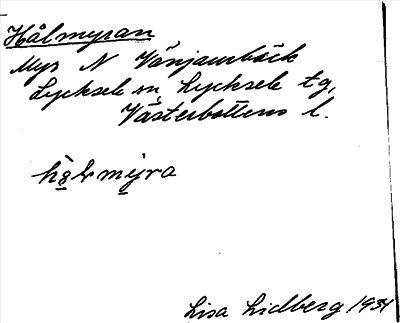 Hålmyran
Myr N Vänjaurbäck
Lycksele sn Lycksele tg,
Västerbottens l.
Lisa Lidberg 1934